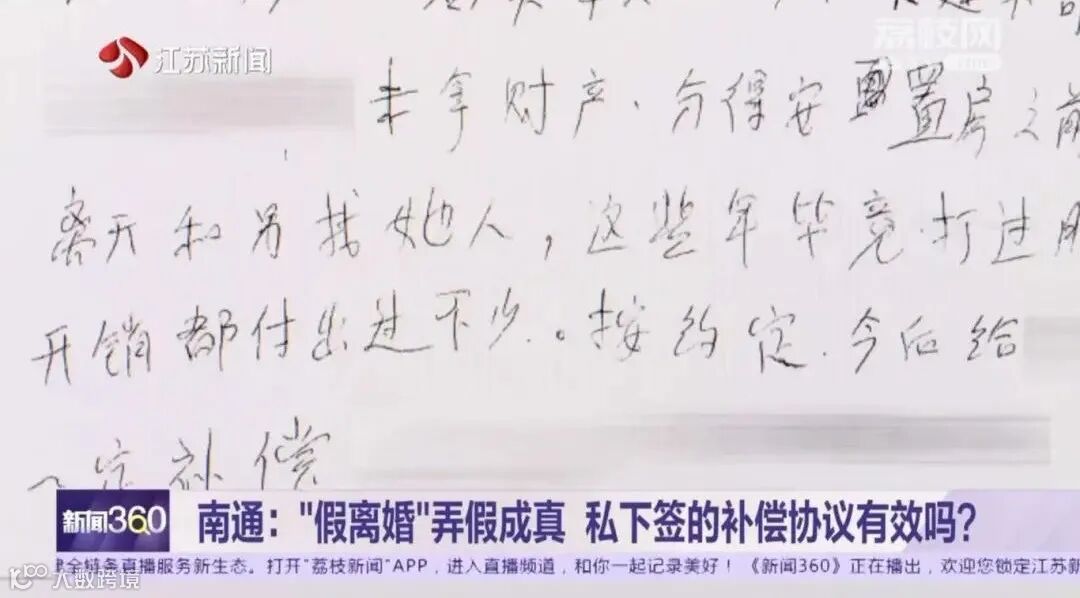 江苏新闻
荔枝网
未拿财产.分得安置房之前
离开和另找她人，这些年毕竟打过
开销都付出过不少。按约定.今后给
一定补偿
新闻360
南通："假离婚"弄假成真 私下签的补偿协议有效吗？
全链条直播服务新生态。打开"荔枝新闻"APP，进入直播频道，和你一起记录美好！《新闻360》正在播出，欢迎您锁定江苏新
大数跨境